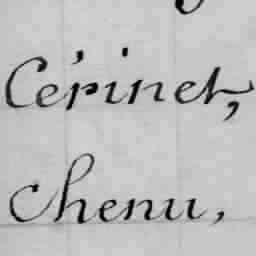 Cérinet,
Chenu,